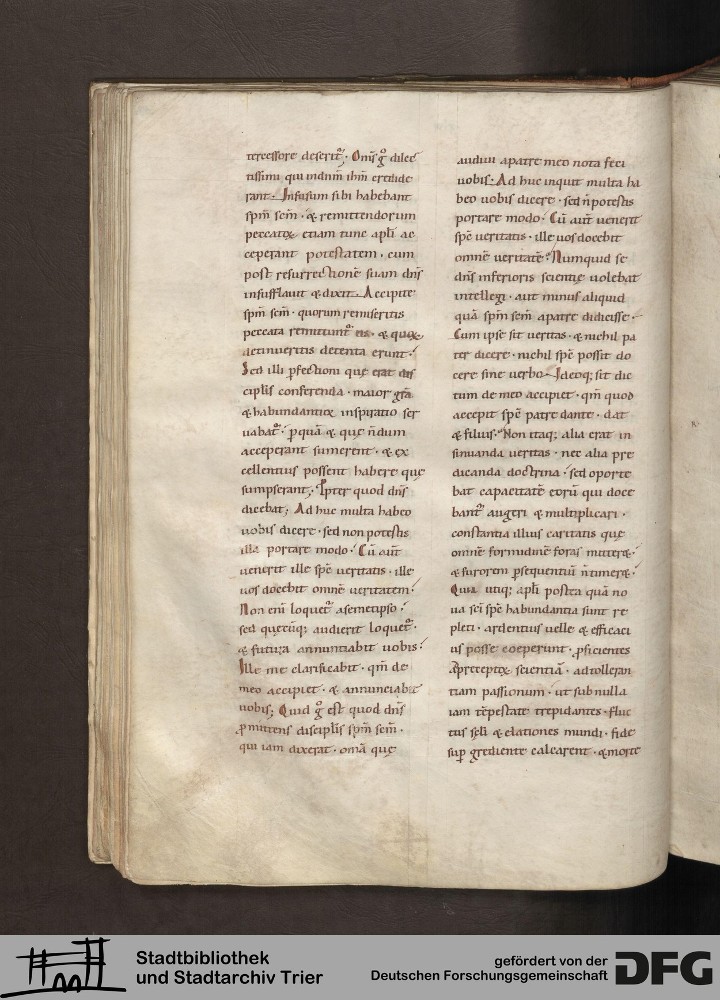 tercessore deserit᷑. Oms̄ g̊ dilec
tissimi qui in dnm̄ ihm̄ credide
rant. Infusum sibi habebant
spm̄ scm̄. & remittendorum
peccatoꝝ etiam tunc apłi ac
ceperant potestatem. cum
post resurrectionē suam dn̄s
insufflauit & dixit. Accipite
spm̄ scm̄. quorum remiseritis
peccata remittunt᷑ eis. & quoꝝ
detinueritis detenta erunt.
Sed illi ꝑfectioni que erat dis
ciplis conferenda. maior gr̄a
& habundantior inspiratio ser
uabat᷑. ꝑ quā & que n̄dum
acceperant sumerent. & ex
cellentius possent habere que
sumpserant; Ipter quod dn̄s
dicebat; Ad huc multa habeo
uobis dicere. sed non potestis
illa portare modo. Cū aūt
uenerit ille spc̄ ueritatis. ille
uos docebit omnē ueritatem.
Non enī loquet᷑ a semetipso.
sed quecūq; audierit loquet᷑.
& futura annuntiabit uobis.
Ille me clarificabit. qm̄ de
meo accipiet. & annunciabit
uobis; Quid g̊ est quod dn̄s
ꝓmittens discipłis spm̄ scm̄.
qui iam dixerat. om̄a que
audiui a patre meo nota feci
uobis. Ad huc inquit multa ha
beo uobis dicere. sed n̄ potestis
portare modo. Cū aūt uenerit
spc̄ ueritatis. ille uos docebit
omnē ueritatē. Numquid se
dn̄s inferioris scientię uolebat
intellegi. aut minus aliquid
quā spm̄ scm̄ a patre didicisse.
Cum ipse sit ueritas. & nichil pa
ter dicere. nichil spc̄ possit do
cere sine uerbo. Ideoq; sit dic
tum de meo accipiet. qm̄ quod
accepit spc̄ patre dante. dat
& filius. Non itaq; alia erat in
sinuanda ueritas. nec alia pre
dicanda doctrina. sed oporte
bat capacitatē eorū qui doce
bant᷑ augeri & multiplicari.
constantia illius caritatis que
omnē formidinē foras mitteret.
& furorem ꝑsequentiū n̄ timeret.
Quia utiq; apłi postea quā no
ua sc̄i spc̄ habundantia sunt re
pleti. ardentius uelle & efficaci
us posse coeperunt. ꝓficientes
a preceptoꝝ scientia. ad tolleran
tiam passionum. ut sub nulla
iam tēpestate trepidantes. fluc
tus scłi & elationes mundi. fide
suꝑ grediente calcarent. & morte
Stadtbibliothek
und Stadtarchiv Trier
gefördert von der
Deutschen Forschungsgemeinschaft
DFG